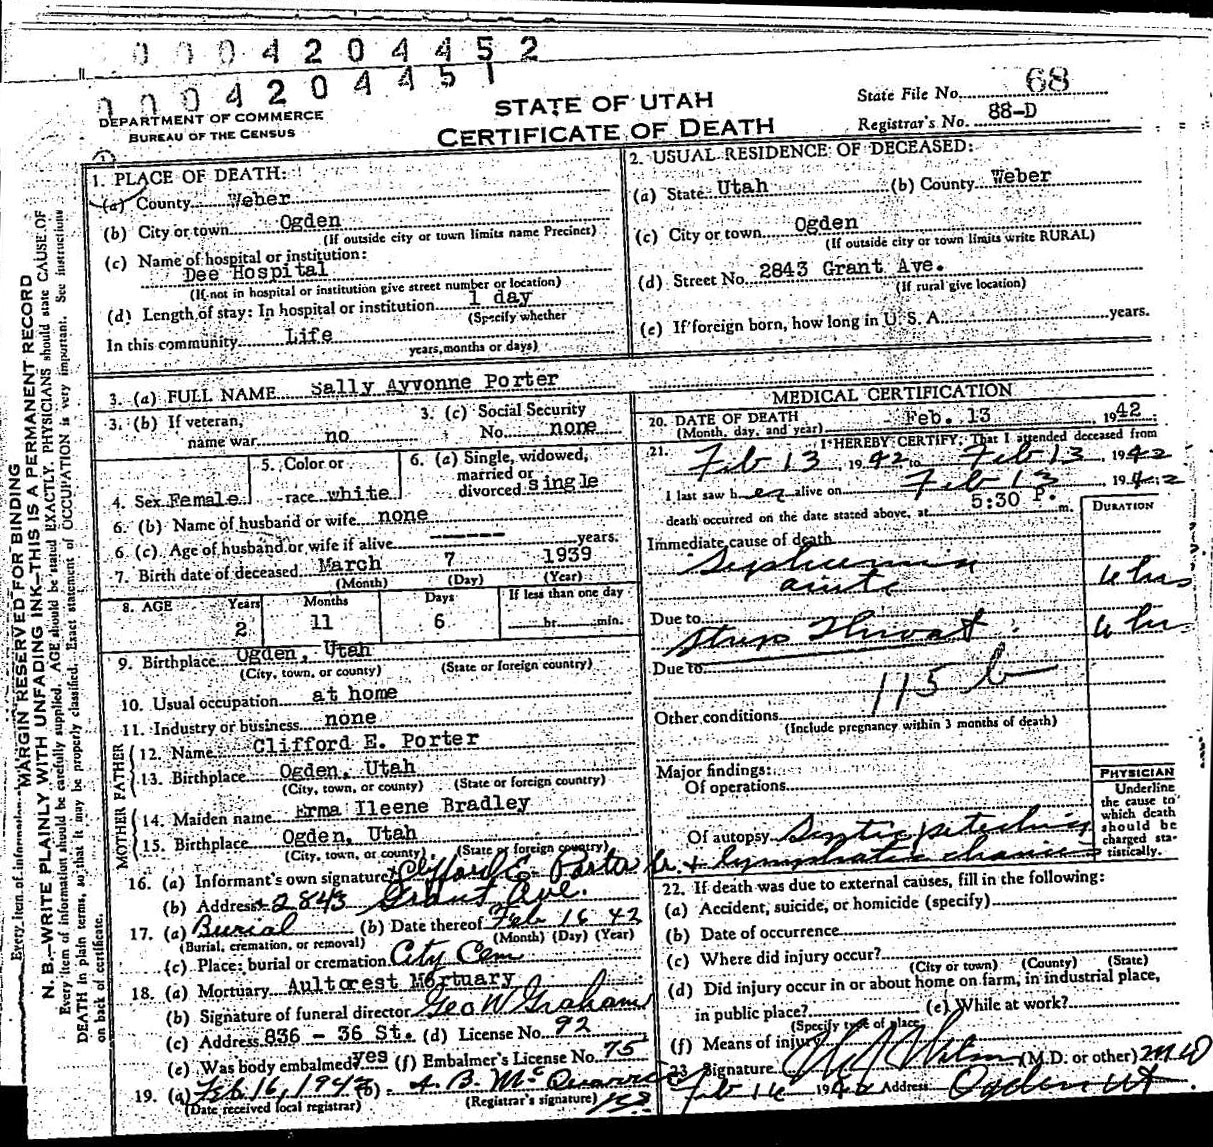 0004204452
0004204451
DEPARTMENT OF COMMERCE
BUREAU OF THE CENSUS
STATE OF UTAH
CERTIFICATE OF DEATH
State File No. 68
Registrar's No. 88-D
MARGIN RESERVED FOR BINDING
N. B.—WRITE PLAINLY WITH UNFADING INK—THIS IS A PERMANENT RECORD
Every item of information should be carefully supplied. AGE should be stated EXACTLY. PHYSICIANS should state CAUSE OF
DEATH in plain terms, so that it may be properly classified. Exact statement of OCCUPATION is very important. See instructions
on back of certificate.
1. PLACE OF DEATH:
(a) County Weber
(b) City or town Ogden
(If outside city or town limits name Precinct)
(c) Name of hospital or institution:
Dee Hospital
(If not in hospital or institution give street number or location)
(d) Length of stay: In hospital or institution 1 day
(Specify whether
In this community Life
years, months or days)
2. USUAL RESIDENCE OF DECEASED:
(a) State Utah (b) County Weber
(c) City or town Ogden
(If outside city or town limits write RURAL)
(d) Street No. 2843 Grant Ave.
(If rural give location)
(e) If foreign born, how long in U. S. A. years.
3. (a) FULL NAME Sally Ayvonne Porter
3. (b) If veteran,
name war no
3. (c) Social Security
No. none
4. Sex Female
5. Color or
race white
6. (a) Single, widowed,
married or
divorced single
6. (b) Name of husband or wife none
6 (c). Age of husband or wife if alive years.
7. Birth date of deceased March 7 1939
(Month) (Day) (Year)
8. AGE Years Months Days If less than one day
2 11 6 hr. min.
9. Birthplace Ogden, Utah
(City, town, or county) (State or foreign country)
10. Usual occupation at home
11. Industry or business none
FATHER
12. Name Clifford E. Porter
13. Birthplace Ogden, Utah
(City, town, or county) (State or foreign country)
MOTHER
14. Maiden name Erma Ileene Bradley
15. Birthplace Ogden, Utah
(City, town, or county) (State or foreign country)
16. (a) Informant's own signature Clifford E. Porter
(b) Address 2843 Grant Ave.
17. (a) Burial (b) Date thereof Feb 16 42
(Burial, cremation, or removal) (Month) (Day) (Year)
(c) Place: burial or cremation City Cem
18. (a) Mortuary Aultorest Mortuary
(b) Signature of funeral director Geo W Graham
(c) Address 836 - 36 St. (d) License No. 92
(e) Was body embalmed yes (f) Embalmer's License No. 75
19. (a) Feb 16, 1942 (b)
(Date received local registrar) (Registrar's signature)
MEDICAL CERTIFICATION
20. DATE OF DEATH Feb. 13 1942
(Month, day, and year)
21. I HEREBY CERTIFY, That I attended deceased from
Feb 13 1942 to Feb 13, 1942
I last saw her alive on Feb 13 1942
death occurred on the date stated above, at 5:30 P. m.
DURATION
Immediate cause of death
Septicemia
acute
Due to
Strep Throat
Due to
115 b
Other conditions
(Include pregnancy within 3 months of death)
Major findings:
Of operations
Of autopsy Septic petechia
+ lymphatic changes
PHYSICIAN
Underline
the cause to
which death
should be
charged sta-
tistically.
22. If death was due to external causes, fill in the following:
(a) Accident, suicide, or homicide (specify)
(b) Date of occurrence
(c) Where did injury occur?
(City or town) (County) (State)
(d) Did injury occur in or about home on farm, in industrial place,
in public place? (e) While at work?
(Specify type of place)
(f) Means of injury
23 Signature (M.D. or other) M D
Feb 14 1942 Address Ogden Ut